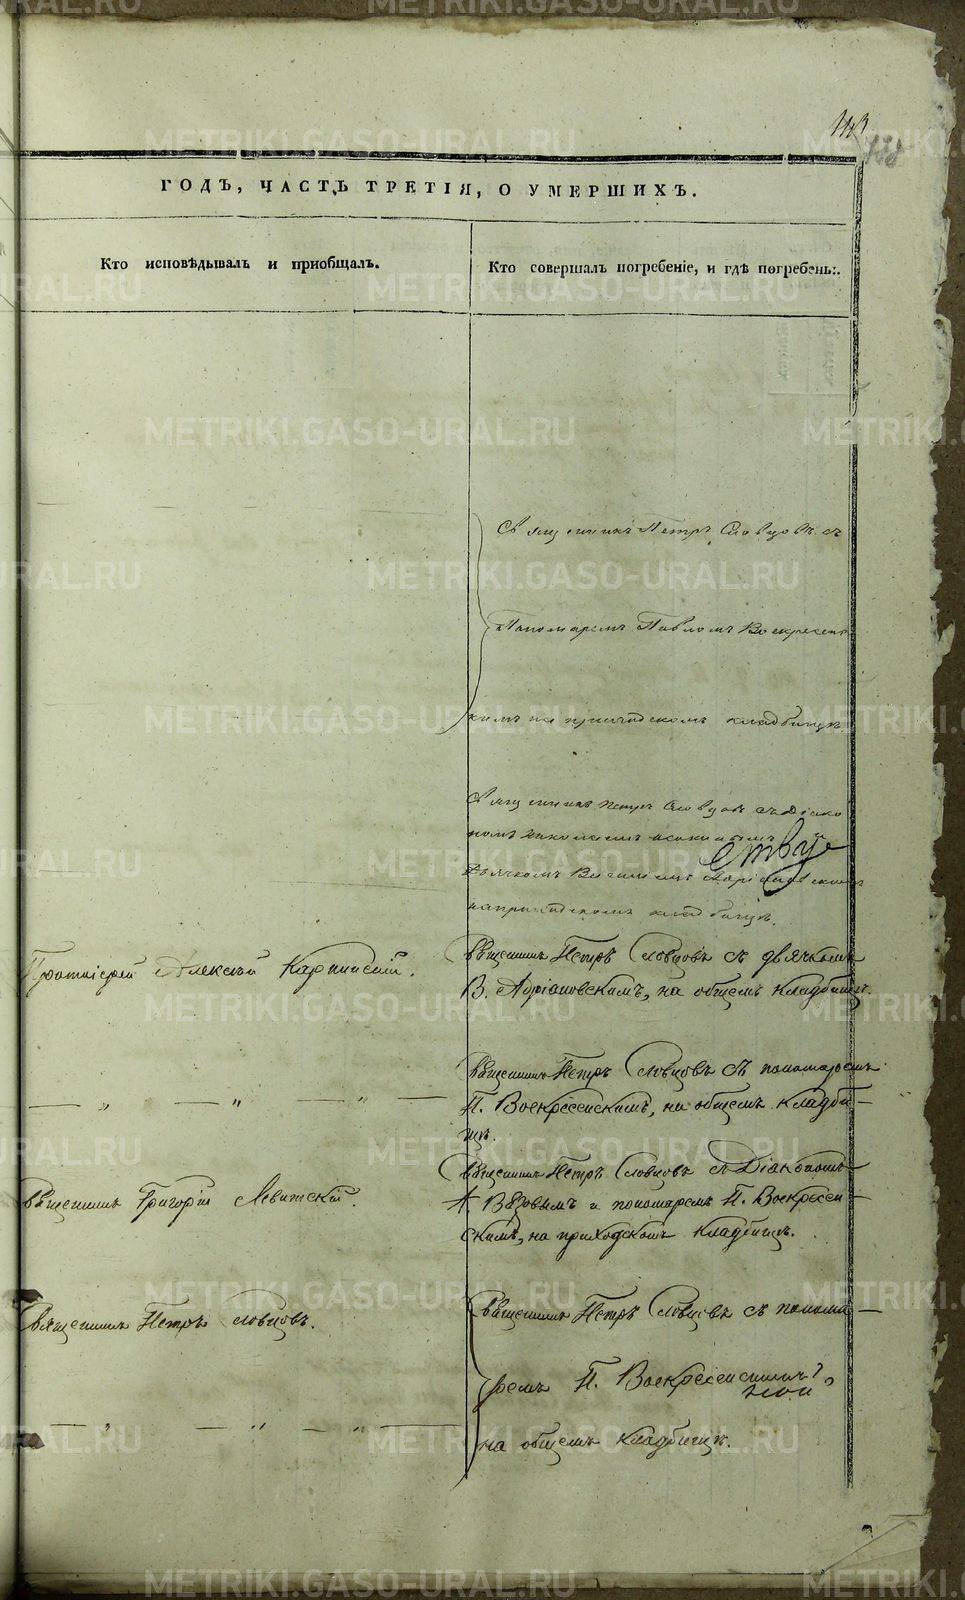 143
ГОДЪ, ЧАСТЬ ТРЕТІЯ, О УМЕРШИХЪ.
Кто исповѣдывалъ и приобщалъ.
Кто совершалъ погребеніе, и гдѣ погребенъ.
Священникъ Петръ Словцовъ съ
Пономаремъ Павломъ Воскресенс
кимъ на приходскомъ кладбищѣ.
Священникъ Петръ Словцовъ съ Діако
номъ
Дьячкомъ Адріановскимъ
на приходскомъ кладбищѣ.
Протоіерей Алексѣй Карпинскій.
Священникъ Петръ Словцовъ съ дьячкомъ
В. Адріановскимъ, на общемъ кладбищѣ.
Священникъ Петръ Словцовъ съ пономаремъ
— „ — „ — „ —
П. Воскресенскимъ, на общемъ кладби-
щѣ.
Священникъ Григорій Левитскій.
Священникъ Петръ Словцовъ съ Діакономъ
А Вязовымъ и пономаремъ П. Воскресен-
скимъ, на приходскомъ кладбищѣ.
Священникъ Петръ Словцовъ.
Священникъ Петръ Словцовъ съ понома-
ремъ П. Воскресенскимъ,
— „ — „ — „ —
на общемъ кладбищѣ.
METRIKI.GASO-URAL.RU